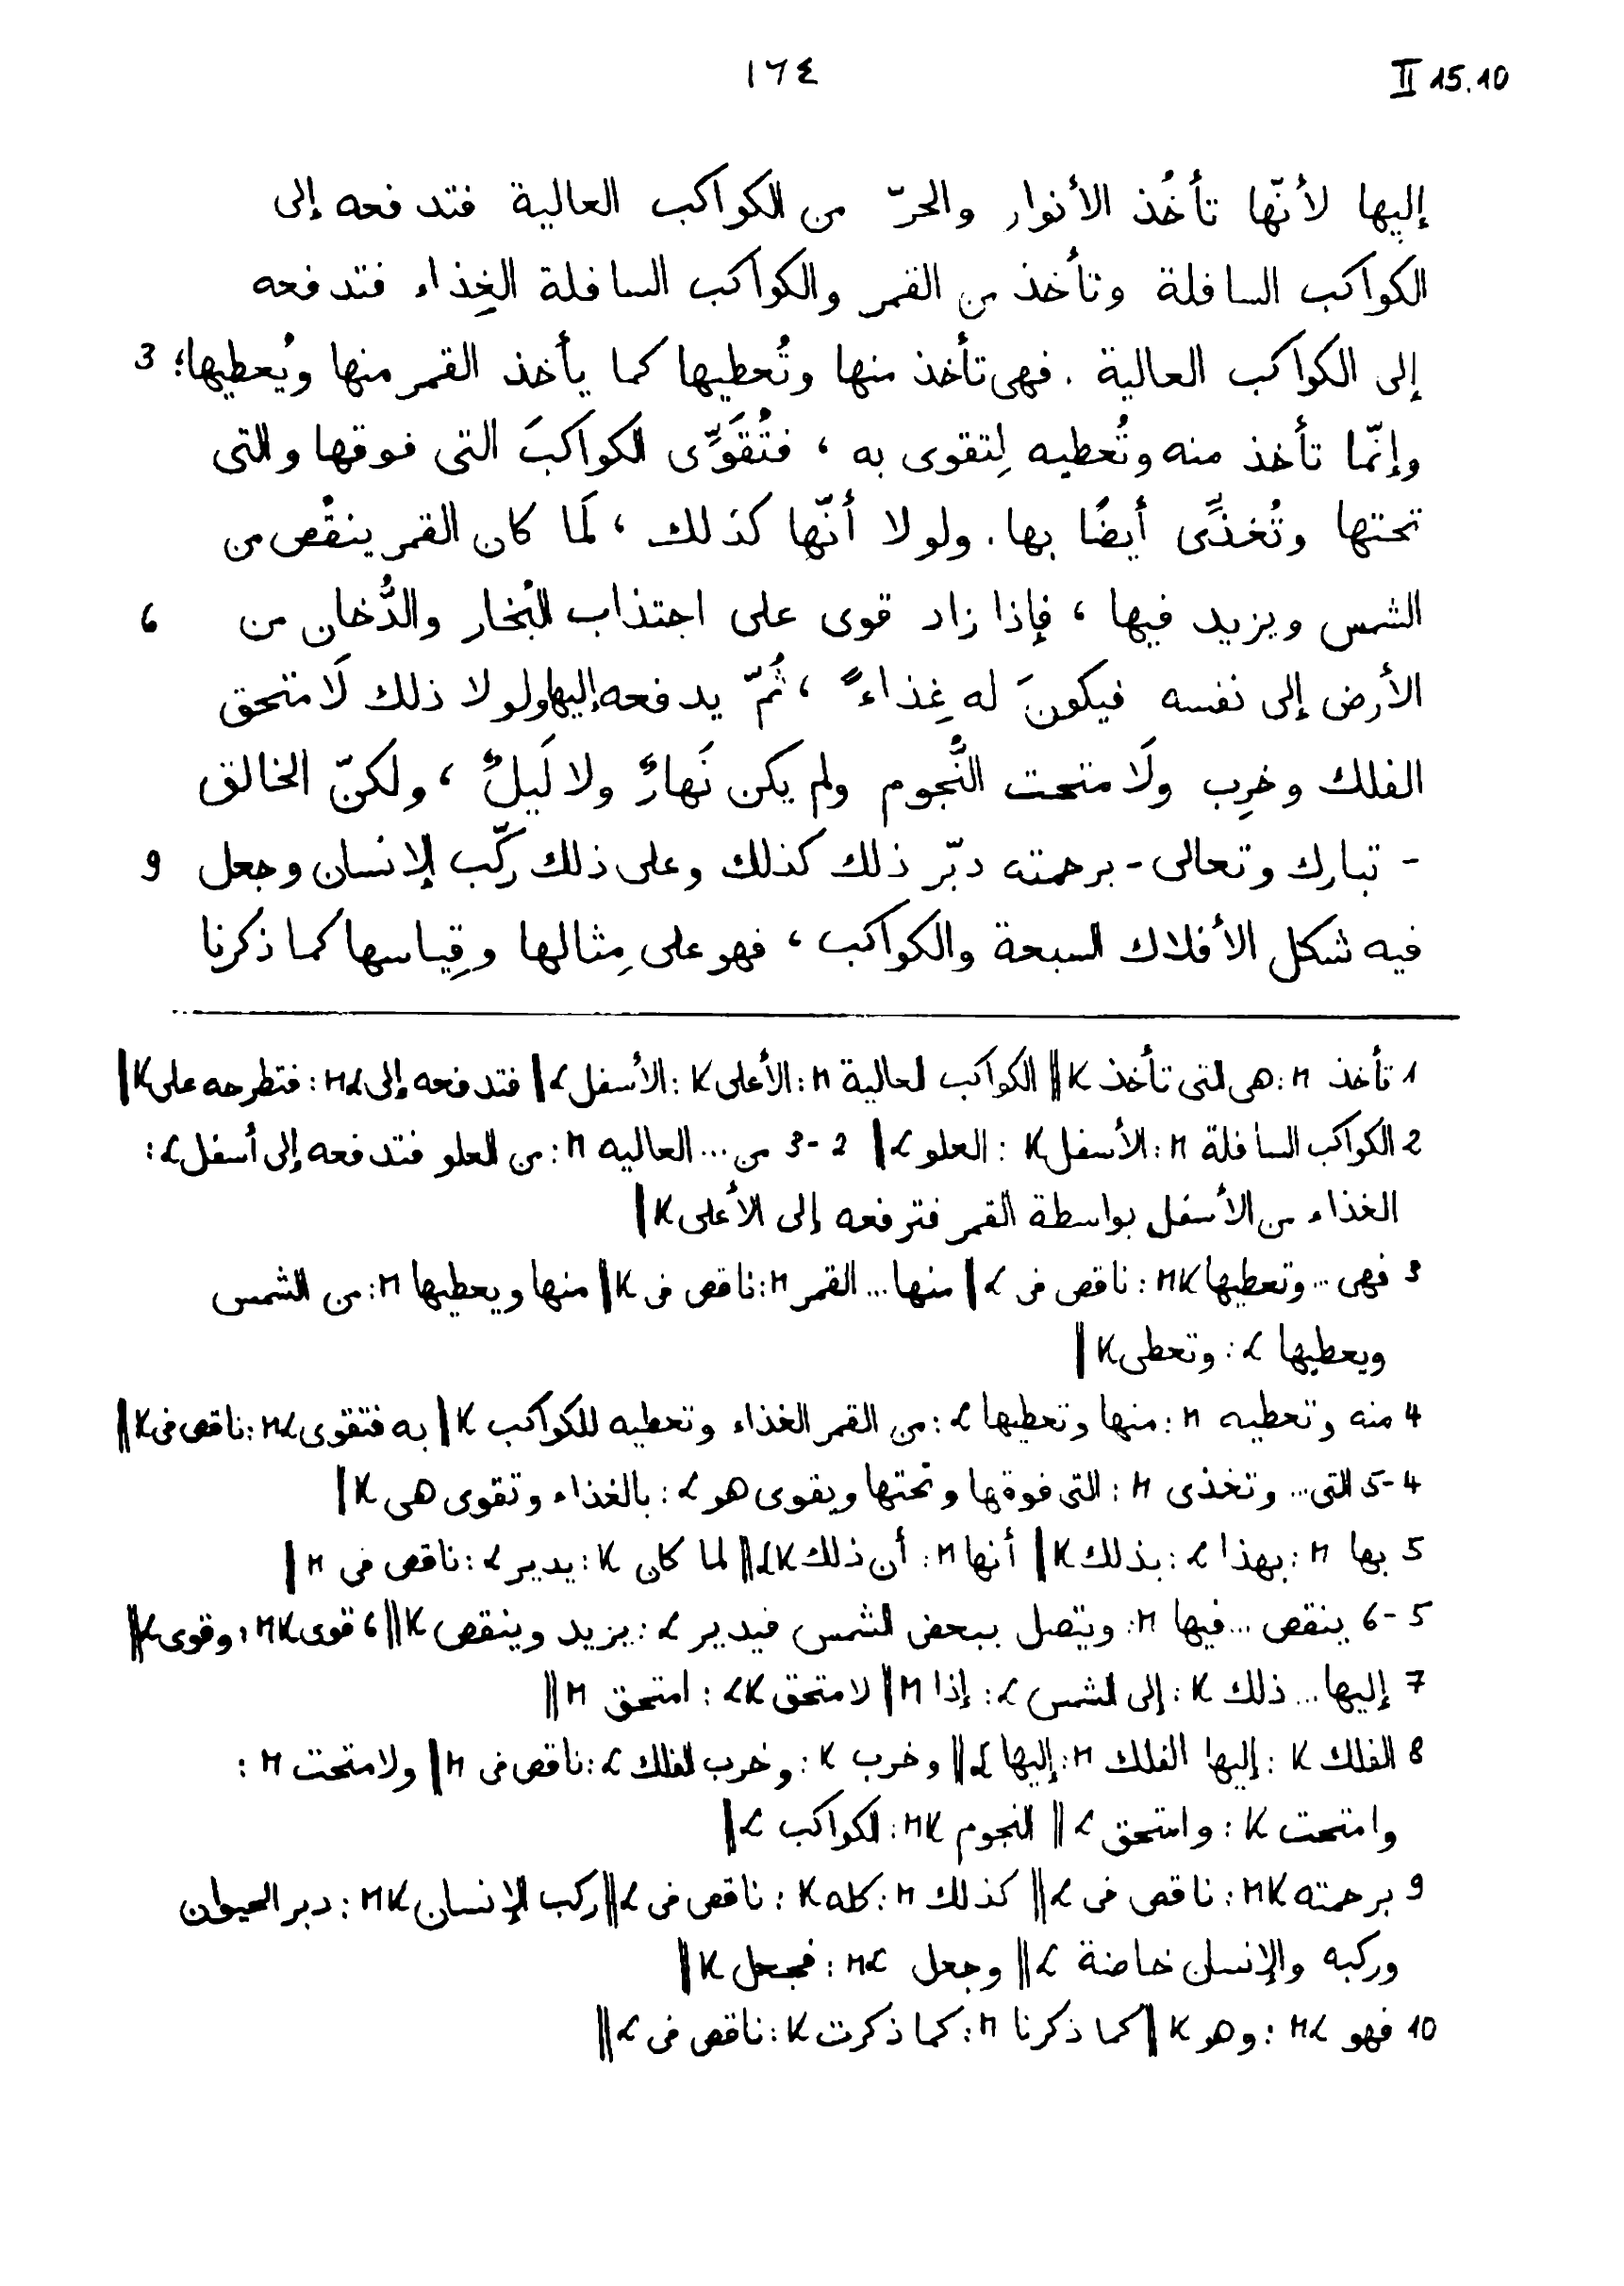 ١٦٤
II 15.10
إليها لأنّها تأخُذ الأنوار والحرّ من الكواكب العالية فتدفعه إلى
الكواكب السافلة وتأخذ من القمر والكواكب السافلة الغِذاء فتدفعه
إلى الكواكب العالية . فهى تأخذ منها وتُعطيها كما يأخذ القمر منها ويُعطيها؛ 3
وإنّما تأخذ منه وتُعطيه لِتقوى به ، فتُقَوِّى الكواكبَ التى فوقها والتى
تحتها وتُغذِّى أيضًا بها . ولولا أنّها كذلك ، لَما كان القمر ينقُص من
الشمس ويزيد فيها ، فإذا زاد قوى على اجتذاب البُخار والدُّخان من 6
الأرض إلى نفسه فيكونَ له غِذاءً ، ثُمّ يدفعه إليها ولولا ذلك لَامتحق
الفلك وخرِب ولَامتحت النُّجوم ولم يكن نَهارٌ ولا لَيلٌ ، ولكنّ الخالق
- تبارك وتعالى - برحمته دبّر ذلك كذلك وعلى ذلك ركّب الإنسان وجعل 9
فيه شكل الأفلاك السبعة والكواكب ، فهو على مِثالها وقِياسها كما ذكرنا
1 تأخذ M : هى التى تأخذ K ‖ الكواكب العالية M : الأعلى K : الأسفل L ‖ فتدفعه إلى ML : فتطرحه على K ‖
2 الكواكب السافلة M : الأسفل K : العلو L ‖ 2-3 من ... العاليه M : من العلو فتدفعه إلى أسفل L :
الغذاء من الأسفل بواسطة القمر فترفعه إلى الأعلى K ‖
3 فهى ... وتعطيها MK : ناقص فى L ‖ منها ... القمر M : ناقص فى K ‖ منها ويعطيها M : من الشمس
ويعطيها L : وتعطى K ‖
4 منه وتعطيه M : منها وتعطيها L : من القمر الغذاء وتعطيه للكواكب K ‖ به فتقوى ML : ناقص فى K ‖
4-5 التى ... وتغذى M : التى فوقها وتحتها ويقوى هو L : بالغذاء وتقوى هى K ‖
5 بها M : بهذا L : بذلك K ‖ أنها M : أن ذلك LK ‖ لما كان K : يدير L : ناقص فى M ‖
5-6 ينقص ... فيها M : ويتصل ببعض الشمس فيدير L : يزيد وينقص K ‖ 6 قوى MK : وقوى L ‖
7 إليها ... ذلك K : إلى الشمس L : إذا M ‖ لامتحق LK : امتحق M ‖
8 الفلك K : إليها الفلك M : إليها L ‖ وخرب K : وخرب الفلك L : ناقص فى M ‖ ولامتحت M :
وامتحت K : وامتحق L ‖ النجوم MK : الكواكب L ‖
9 برحمته MK : ناقص فى L ‖ كذلك M : كله K : ناقص فى L ‖ ركب الإنسان MK : دبر الحيوان
وركبه والإنسان خاصة L ‖ وجعل ML : فجعل K ‖
10 فهو ML : وهو K ‖ كما ذكرنا M : كما ذكرت K : ناقص فى L ‖